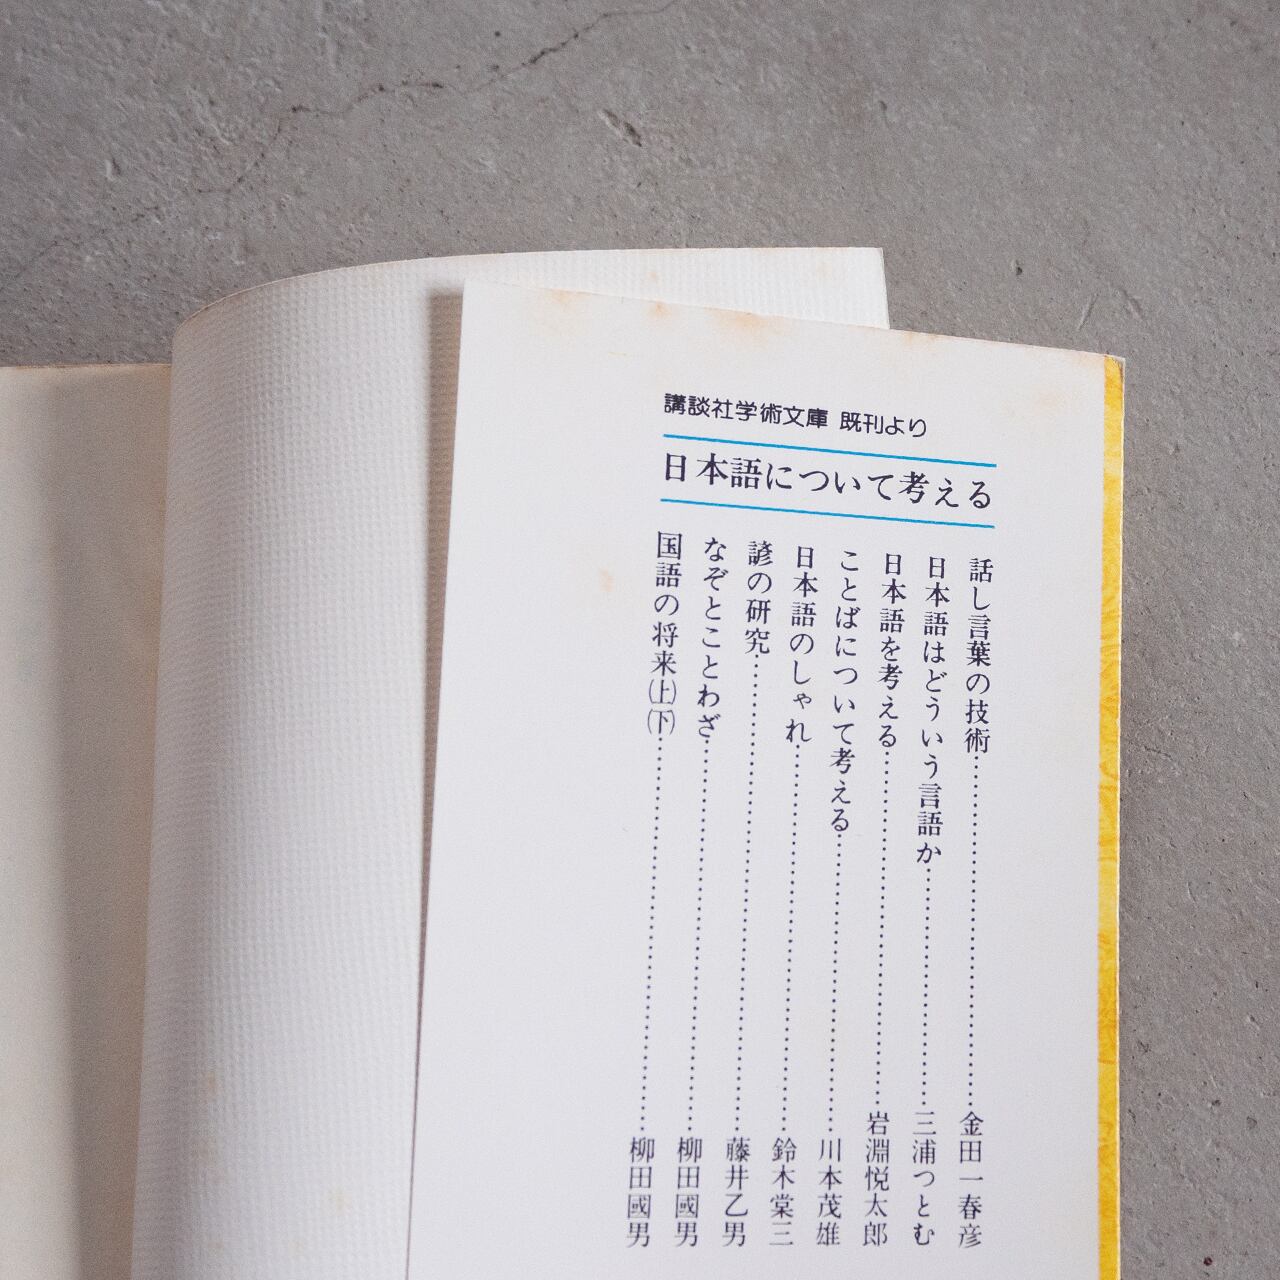 講談社学術文庫 既刊より
日本語について考える
話し言葉の技術……………………金田一春彦
日本語はどういう言語か……………………三浦つとむ
日本語を考える……………………岩淵悦太郎
ことばについて考える……………………川本茂雄
日本語のしゃれ……………………鈴木棠三
諺の研究……………………藤井乙男
なぞとことわざ……………………柳田國男
国語の将来(上)(下)……………………柳田國男